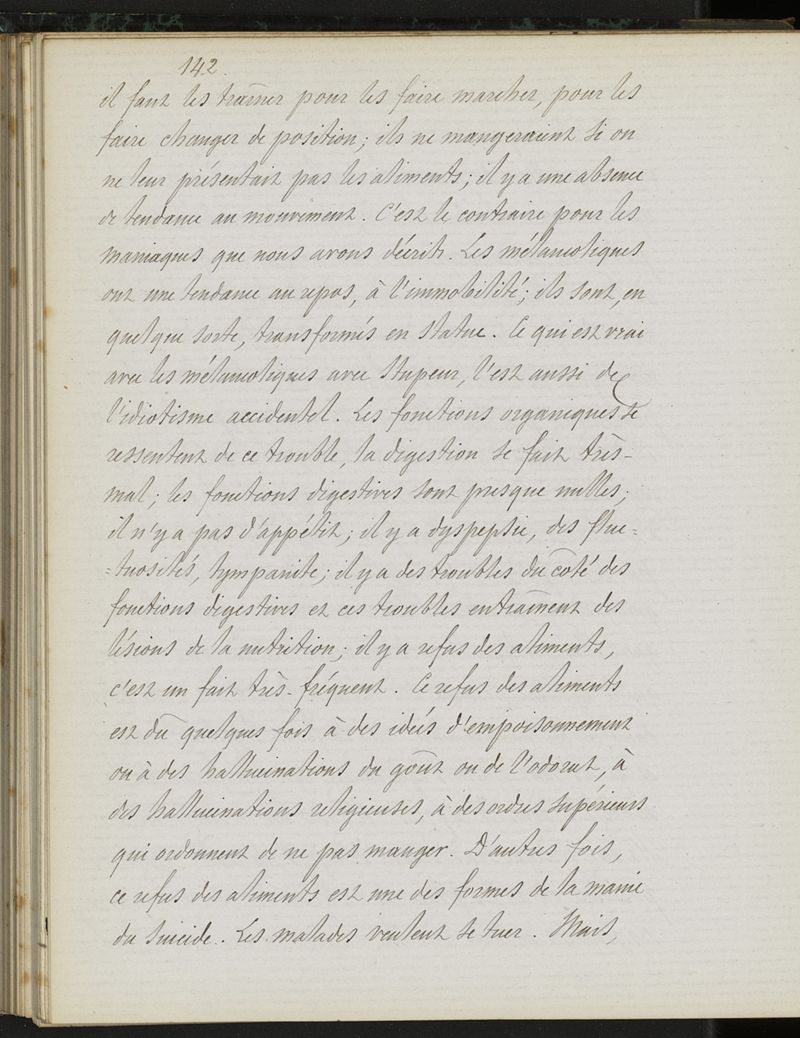 142.
il faut les traîner pour les faire marcher, pour les
faire changer de position; ils ne mangeraient si on
ne leur présentait pas les aliments; il y a une absence
de tendance au mouvement. C'est le contraire pour les
maniaques que nous avons décrits. Les mélancoliques
ont une tendance au repos, à l'immobilité; ils sont, en
quelque sorte, transformés en statue. Ce qui est vrai
avec les mélancoliques avec stupeur, l'est aussi de
l'idiotisme accidentel. Les fonctions organiques se
ressentent de ce trouble, la digestion se fait très-
mal; les fonctions digestives sont presque nulles;
il n'y a pas d'appétit; il y a dyspepsie, des fluc=
=tuosités, tympanite; il y a des troubles du côté des
fonctions digestives et ces troubles entraînent des
lésions de la nutrition; il y a refus des aliments,
c'est un fait très-fréquent. Ce refus des aliments
est dû quelques fois à des idées d'empoisonnement
ou à des hallucinations du goût ou de l'odorat, à
des hallucinations religieuses, à des ordres supérieurs
qui ordonnent de ne pas manger. D'autres fois,
ce refus des aliments est une des formes de la manie
du suicide. Les malades veulent se tuer. Mais,